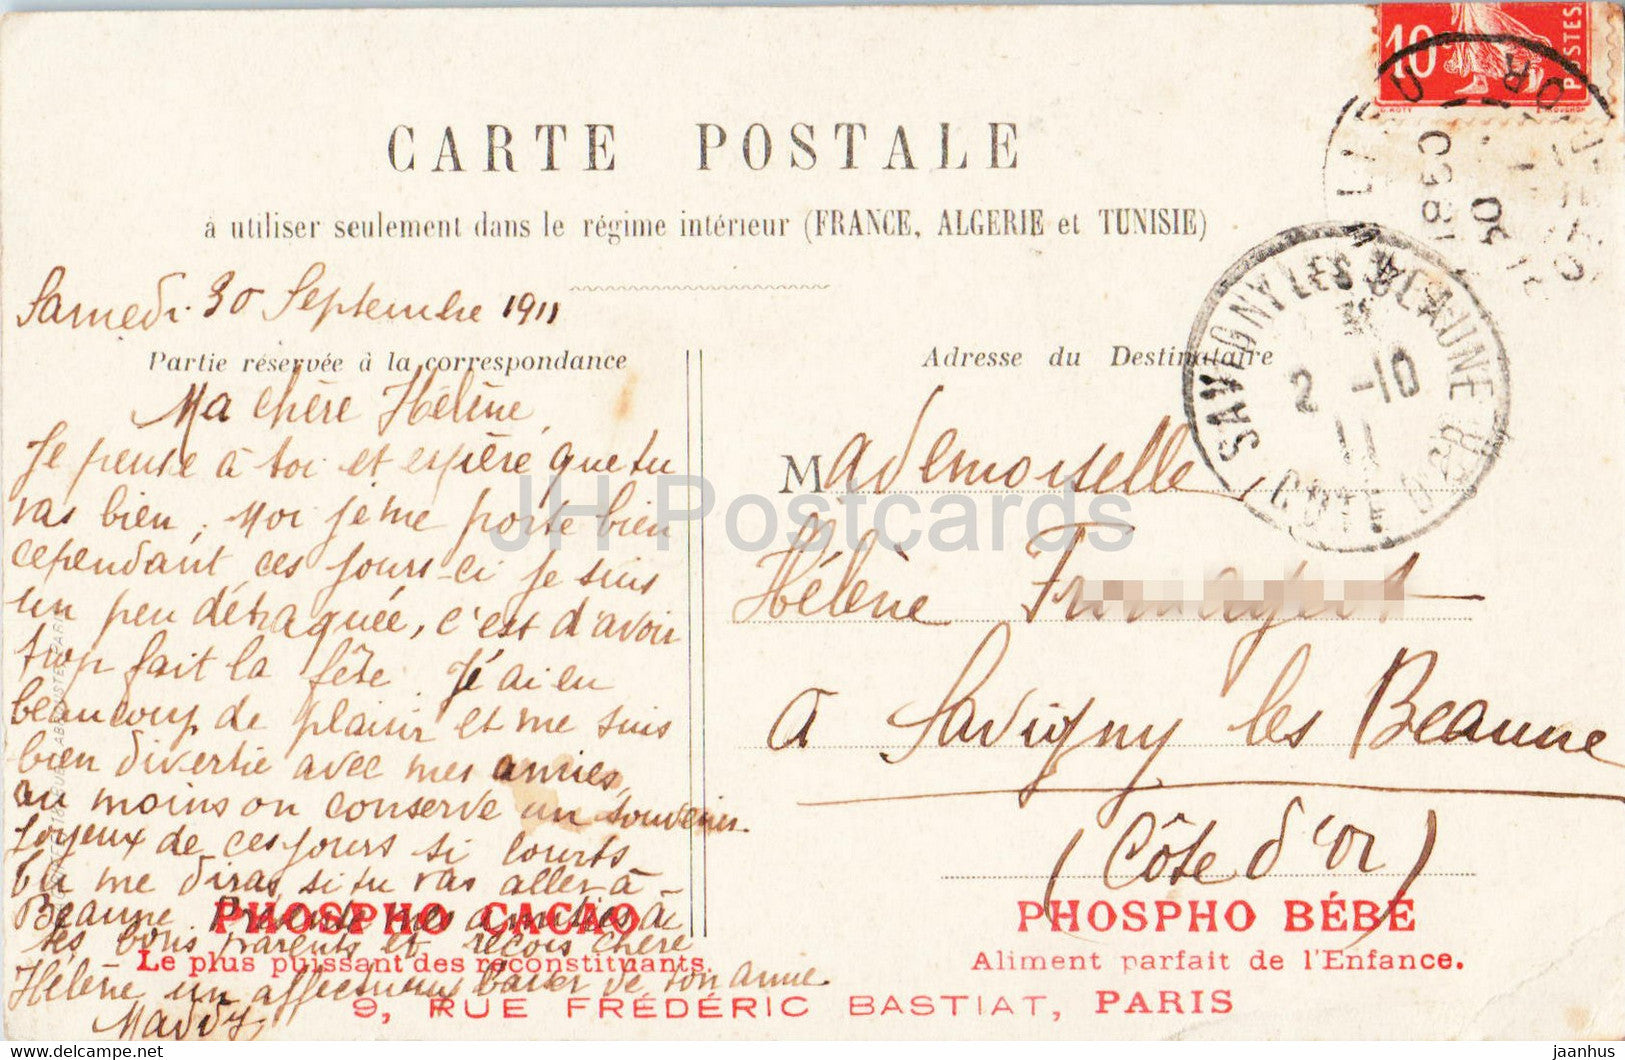 10
POSTES
CARTE POSTALE
à utiliser seulement dans le régime intérieur (FRANCE, ALGERIE et TUNISIE)
Samedi 30 Septembre 1911
Partie réservée à la correspondance
Ma chère Hélène,
Je pense à toi et espère que tu
vas bien, Moi je me porte bien
cependant ces jours-ci je suis
un peu détraquée, c'est d'avoir
trop fait la fête. J'ai eu
beaucoup de plaisir et me suis
bien divertie avec mes amies,
au moins on conserve un souvenir
joyeux de ces jours si courts
tu me diras si tu vas aller à
Beaune Présente mes amitiés à
tes bons parents et reçois chère
Hélène un affectueux baiser de ton amie
Maddy
Adresse du Destinataire
Mademoiselle
Hélène
à Savigny les Beaune
(Côte d'Or)
SAVIGNY LES BEAUNE
2 -10
11
COTE D'OR
PHOSPHO CACAO
Le plus puissant des reconstituants
PHOSPHO BÉBÉ
Aliment parfait de l'Enfance.
9, RUE FRÉDÉRIC BASTIAT, PARIS
JH Postcards
jaanhus